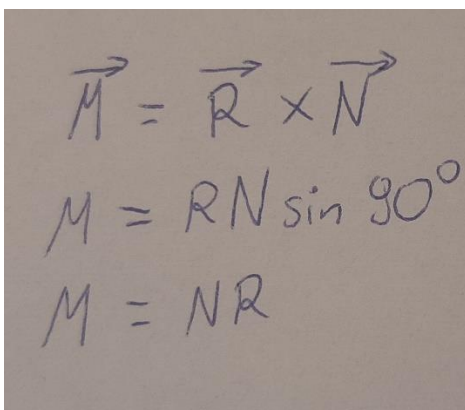 M⃗ = R⃗ × N⃗
M = RN sin 90°
M = NR